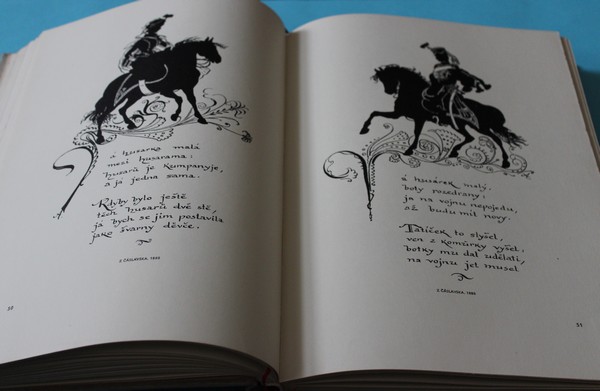 a husarko malá
mezi husarama:
husarů je kumpanyje,
a já jedna sama.
Kdyby bylo ještě
těch husarů dvě stě,
já bych se jim postavila
jako švarny děvče.
Z ČÁSLAVSKA,
50
á husárek malý,
boty rozdrany:
ja na vojnu nepojedu,
až budu mít nový.
Tatíček to slyšel,
ven z komůrky vyšel:
botky mu dal udělati,
na vojnu jet musel
Z ČÁSLAVSKA,
51